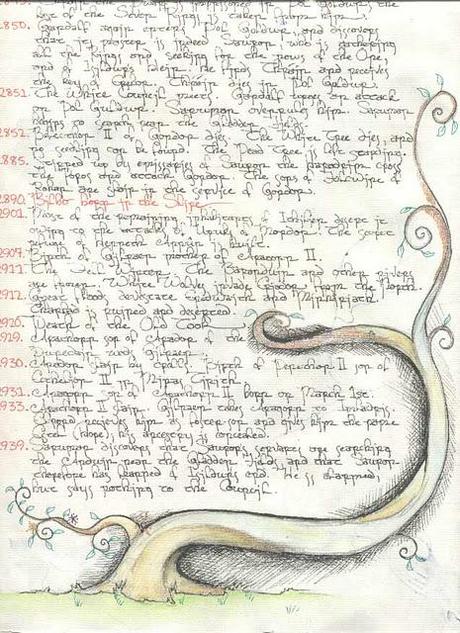 Thráin the Dwarf is imprisoned in Dol Guldur; the
last of the Seven Rings is taken from him.
2850. Gandalf again enters Dol Guldur, and discovers
that its master is indeed Sauron, who is gathering
all the Rings and seeking for the news of the One,
and of Isildur's Heir. He finds Thráin and receives
the key of Erebor. Thráin dies in Dol Guldur.
2851. The White Council meets. Gandalf urges an attack
on Dol Guldur. Saruman overrules him. Saruman
begins to search near the Gladden Fields.
2852. Belecthor II of Gondor dies. The White Tree dies, and
no seedling can be found. The Dead Tree is left standing.
2885. Stirred up by emissaries of Sauron the Haradrim cross
the Poros and attack Gondor. The sons of Folcwine of
Rohan are slain in the service of Gondor.
2890. Bilbo born in the Shire.
2901. Most of the remaining inhabitants of Ithilien desert it
owing to the attacks of Uruks of Mordor. The secret
refuge of Henneth Annûn is built.
2907. Birth of Gilraen mother of Aragorn II.
2911. The Fell Winter. The Baranduin and other rivers
are frozen. White Wolves invade Eriador from the North.
2912. Great floods devastate Enedwaith and Minhiriath.
Tharbad is ruined and deserted.
2920. Death of the Old Took.
2929. Arathorn son of Arador of the
Dúnedain weds Gilraen.
2930. Arador slain by trolls. Birth of Denethor II son of
Ecthelion II in Minas Tirith.
2931. Aragorn son of Arathorn II born on March 1st.
2933. Arathorn II slain. Gilraen takes Aragorn to Imladris.
Elrond receives him as foster-son and gives him the name
Estel (Hope); his ancestry is concealed.
2939. Saruman discovers that Sauron's servants are searching
the Anduin near the Gladden Fields, and that Sauron
therefore has learned of Isildur's end. He is alarmed,
but says nothing to the Council.